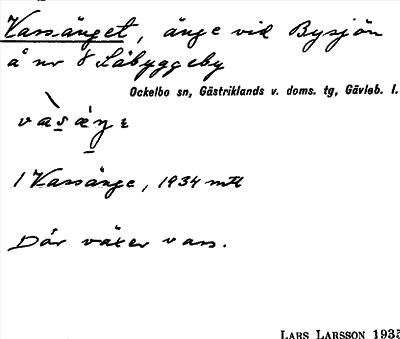 Vassänget, änge vid Bysjön
å nr 8 Låbyggeby
Ockelbo sn, Gästriklands v. doms. tg, Gävleb. l.
1 Vassänge, 1934 mtl
Där växer vass.
LARS LARSSON 1935